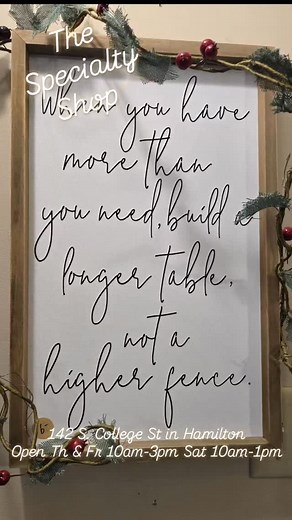 The
Specialty
Shop
When you have
more than
you need, build a
longer table,
not a
higher fence.
142 S. College St in Hamilton
Open Th & Fr 10am-3pm Sat 10am-1pm